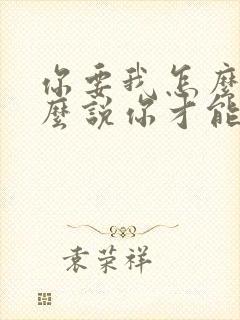 你要我怎麼
麼說你才能
袁荣祥